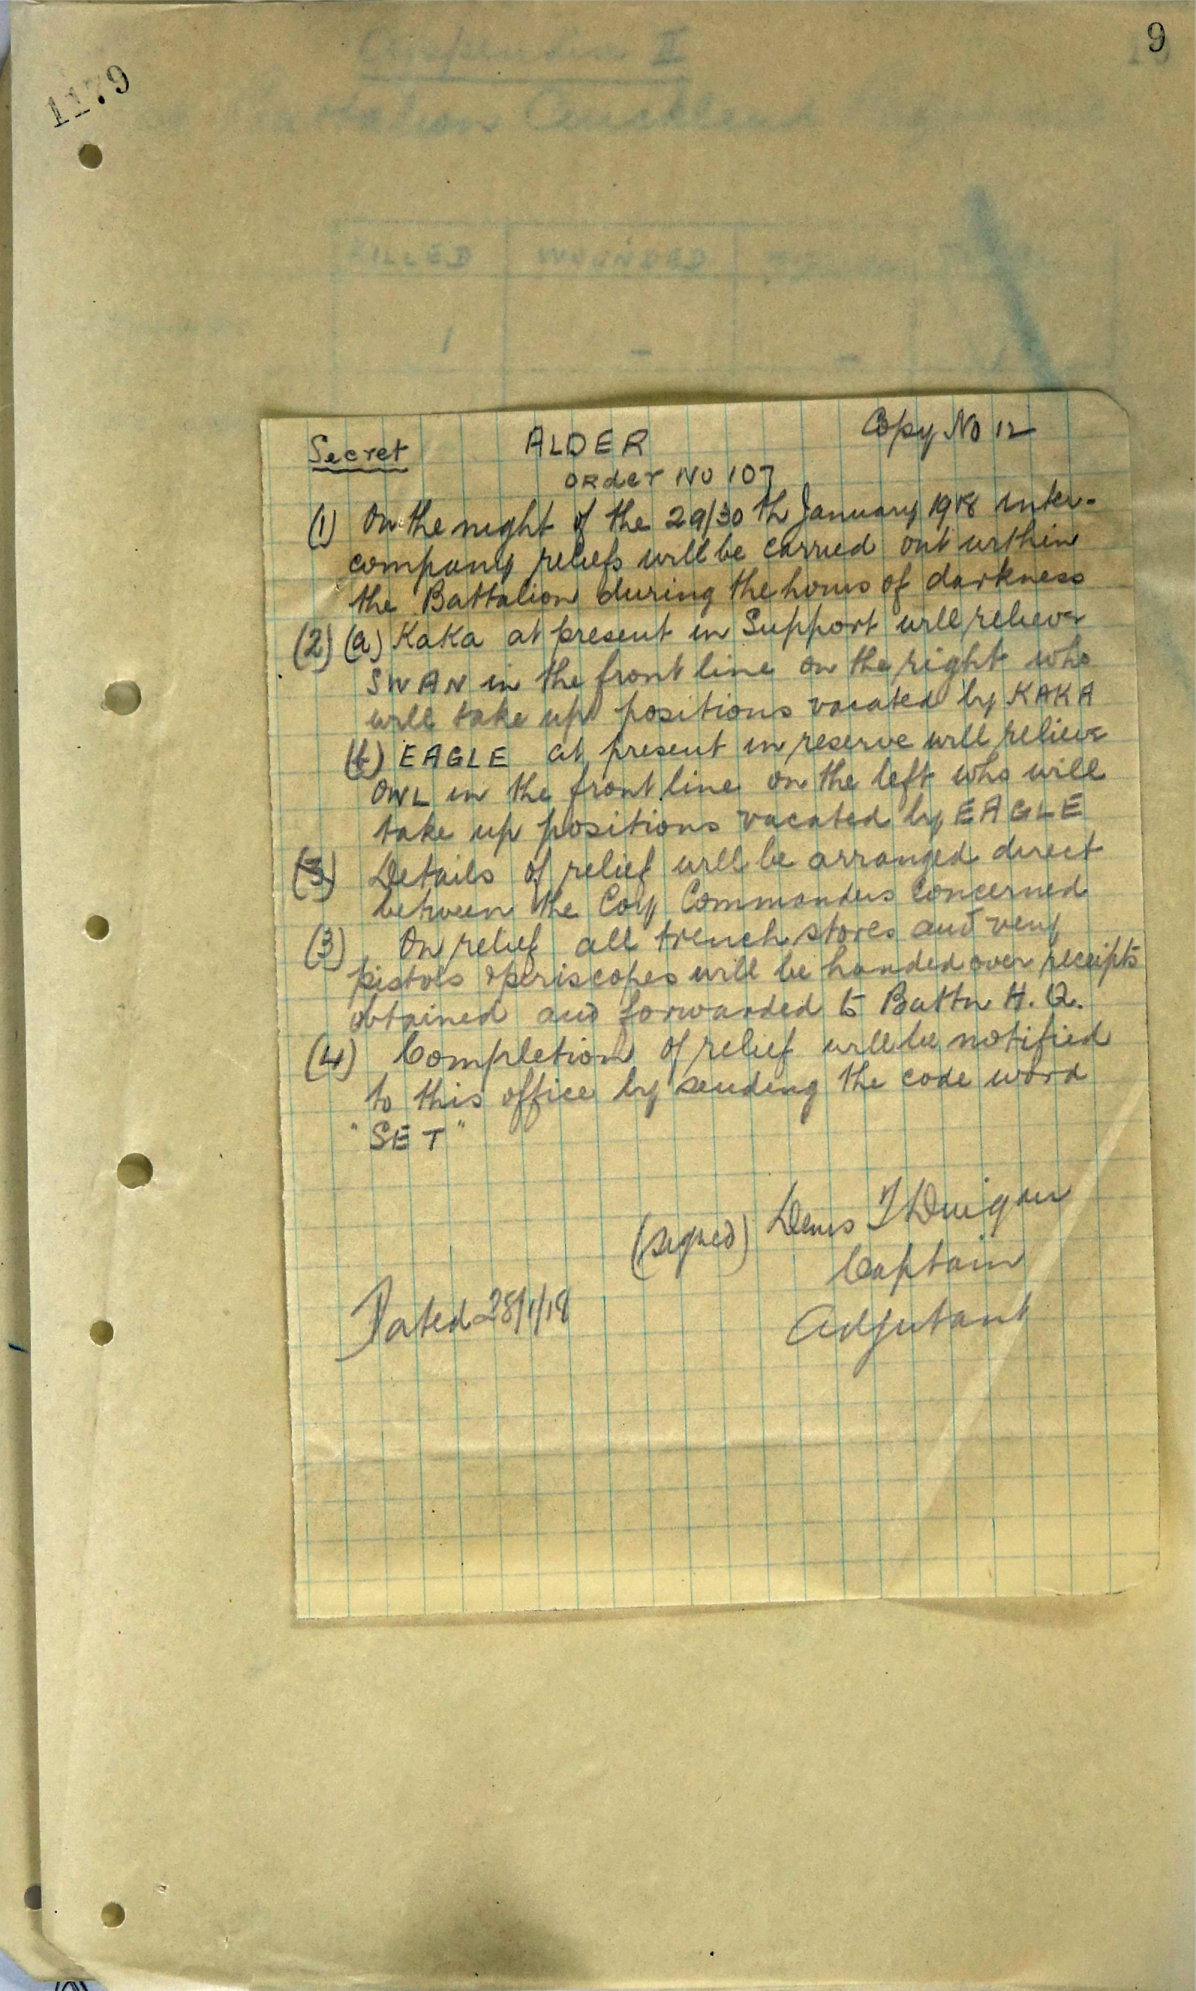 9
1179
Appendix I
Battalion Auckland
KILLED WOUNDED
1 - -
Secret ALDER Copy No 12
Order No 107
(1) On the night of the 29/30 th January 1918 inter-
company reliefs will be carried out within
the Battalion during the hours of darkness
(2) (a) Kaka at present in Support will relieve
SWAN in the front line on the right who
will take up positions vacated by KAKA
(b) EAGLE at present in reserve will relieve
OWL in the front line on the left who will
take up positions vacated by EAGLE
(3) Details of relief will be arranged direct
between the Coy Commanders concerned
(3) On relief all trench stores and very
pistols & periscopes will be handed over receipts
obtained and forwarded to Battn H.Q.
(4) Completion of relief will be notified
to this office by sending the code word
"SET"
(signed) Denis T Duigan
Captain
Dated 28/1/18 Adjutant